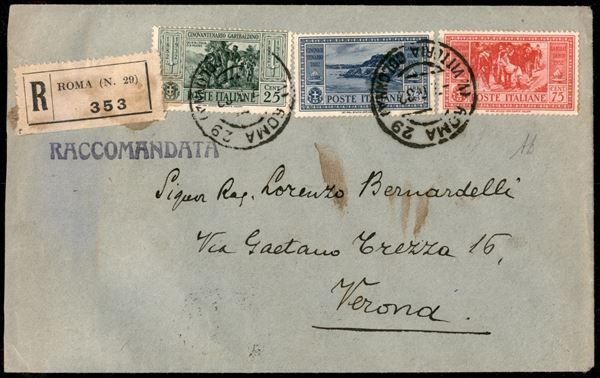 R
ROMA (N. 29)
353
CINQUANTENARIO GARIBALDINO
POSTE ITALIANE
CENT
25
CINQUANTENARIO GARIBALDINO
POSTE ITALIANE
POSTE ITALIANE
CENT
75
ROMA 29
ROMA 29
V. VITTORIA COLONNA
RACCOMANDATA
Signor Rag. Lorenzo Bernardelli
Via Gaetano Trezza 16,
Verona.